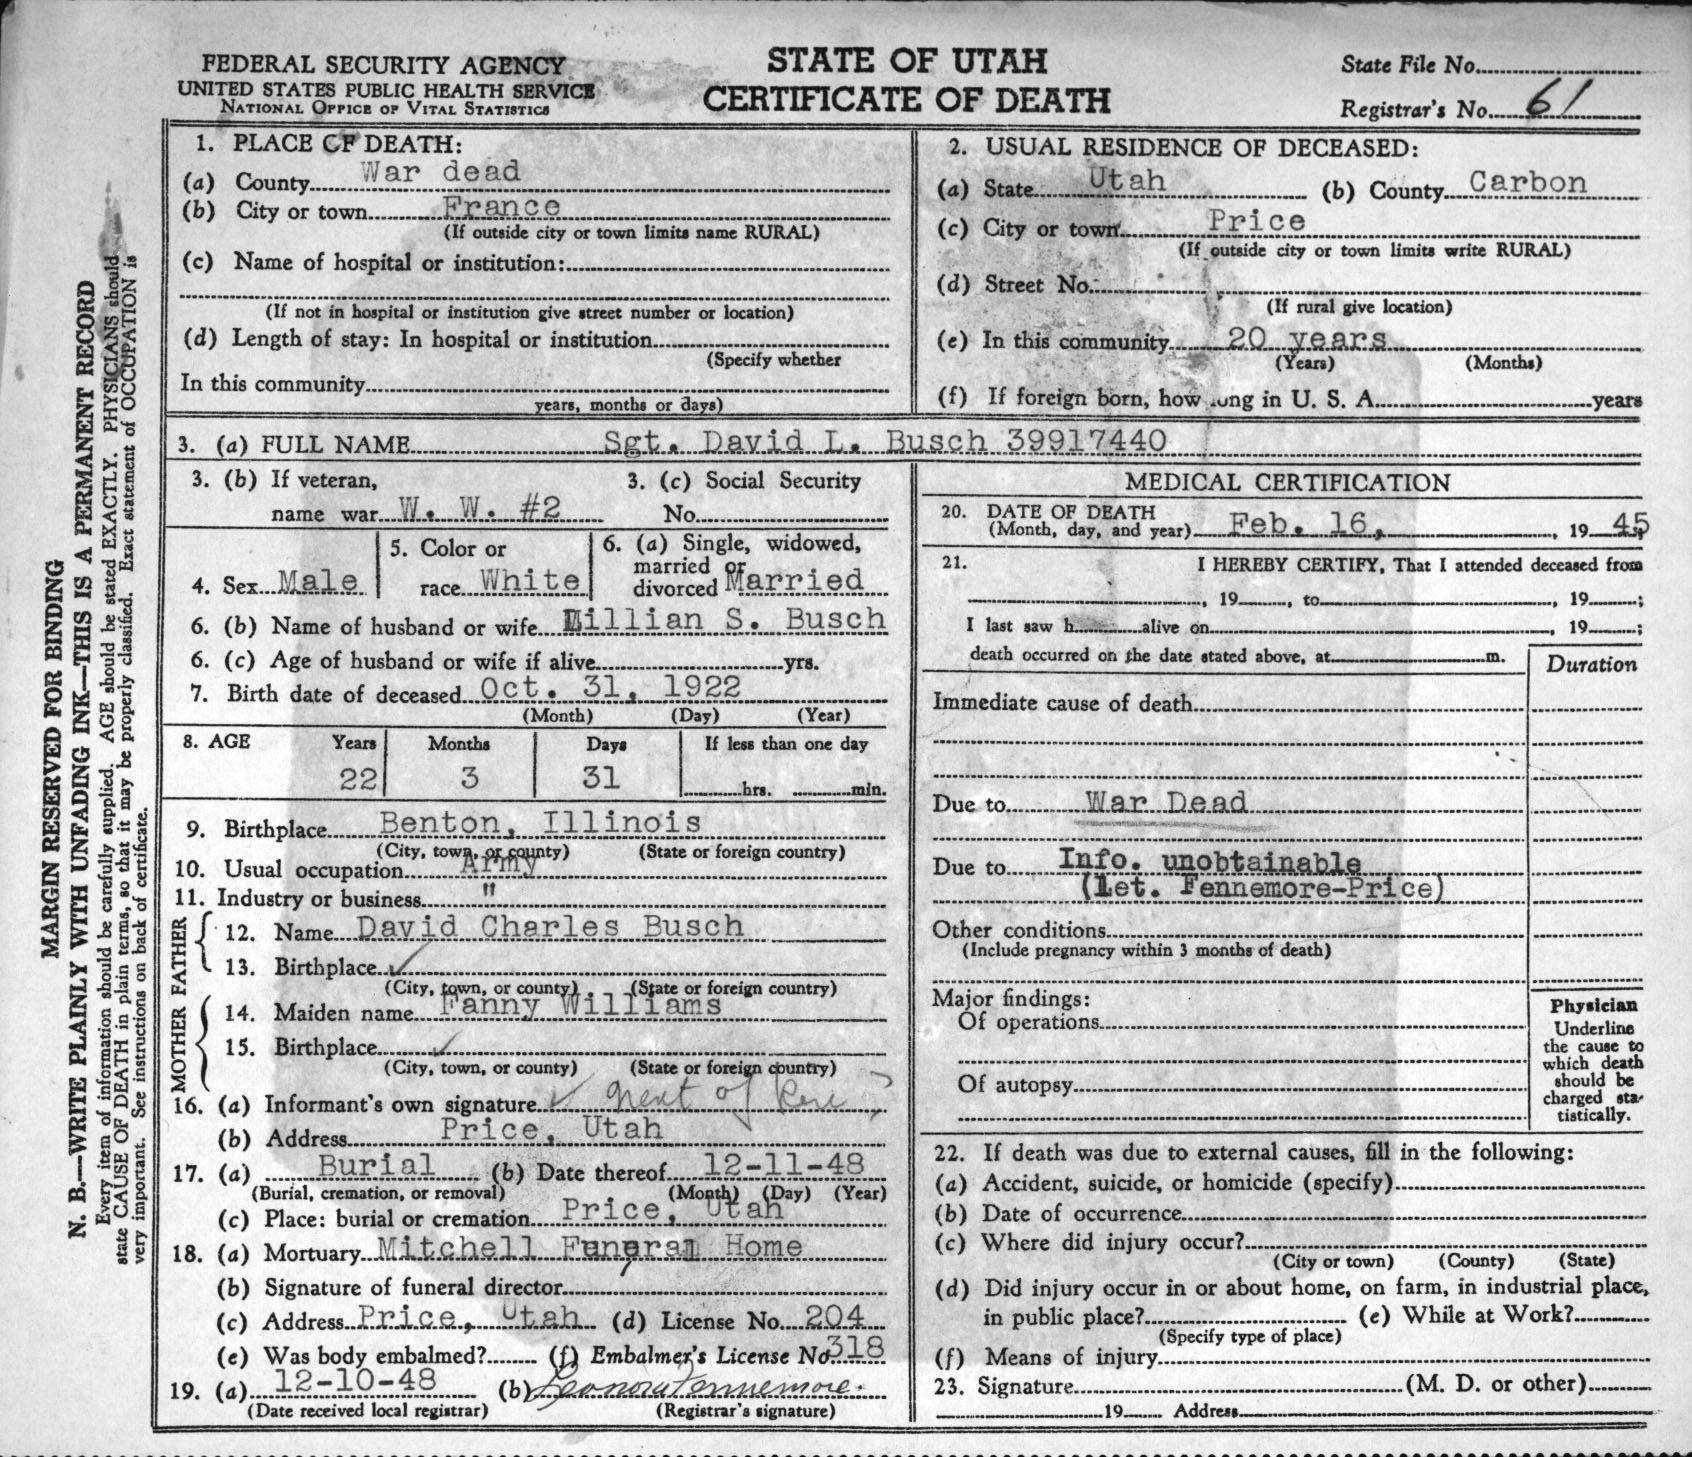 FEDERAL SECURITY AGENCY
UNITED STATES PUBLIC HEALTH SERVICE
NATIONAL OFFICE OF VITAL STATISTICS
STATE OF UTAH
CERTIFICATE OF DEATH
State File No.
Registrar's No. 61
MARGIN RESERVED FOR BINDING
N. B.—WRITE PLAINLY WITH UNFADING INK—THIS IS A PERMANENT RECORD
Every item of information should be carefully supplied. AGE should be stated EXACTLY. PHYSICIANS should
state CAUSE OF DEATH in plain terms, so that it may be properly classified. Exact statement of OCCUPATION is
very important. See instructions on back of certificate.
1. PLACE OF DEATH:
(a) County War dead
(b) City or town France
(If outside city or town limits name RURAL)
(c) Name of hospital or institution:
(If not in hospital or institution give street number or location)
(d) Length of stay: In hospital or institution
(Specify whether
In this community
years, months or days)
2. USUAL RESIDENCE OF DECEASED:
(a) State Utah (b) County Carbon
(c) City or town Price
(If outside city or town limits write RURAL)
(d) Street No.
(If rural give location)
(e) In this community 20 years
(Years) (Months)
(f) If foreign born, how long in U. S. A. years
3. (a) FULL NAME Sgt. David L. Busch 39917440
3. (b) If veteran,
name war W. W. #2
3. (c) Social Security
No.
4. Sex Male
5. Color or
race White
6. (a) Single, widowed,
married or
divorced Married
6. (b) Name of husband or wife Lillian S. Busch
6. (c) Age of husband or wife if alive yrs.
7. Birth date of deceased Oct. 31, 1922
(Month) (Day) (Year)
8. AGE Years Months Days If less than one day
22 3 31 hrs. min.
9. Birthplace Benton, Illinois
(City, town, or county) (State or foreign country)
10. Usual occupation Army
11. Industry or business "
FATHER
12. Name David Charles Busch
13. Birthplace ✓
(City, town, or county) (State or foreign country)
MOTHER
14. Maiden name Fanny Williams
15. Birthplace ✓
(City, town, or county) (State or foreign country)
16. (a) Informant's own signature ✓ next of kin ?
(b) Address Price, Utah
17. (a) Burial (b) Date thereof 12-11-48
(Burial, cremation, or removal) (Month) (Day) (Year)
(c) Place: burial or cremation Price, Utah
18. (a) Mortuary Mitchell Funeral Home
(b) Signature of funeral director
(c) Address Price, Utah (d) License No. 204
(e) Was body embalmed? (f) Embalmer's License No. 318
19. (a) 12-10-48 (b) Leonora Fennemore.
(Date received local registrar) (Registrar's signature)
MEDICAL CERTIFICATION
20. DATE OF DEATH
(Month, day, and year) Feb. 16, , 19 45
21. I HEREBY CERTIFY, That I attended deceased from
, 19 , to , 19 ;
I last saw h alive on , 19 ;
death occurred on the date stated above, at m.
Duration
Immediate cause of death
Due to War Dead
Due to Info. unobtainable
(let. Fennemore-Price)
Other conditions
(Include pregnancy within 3 months of death)
Major findings:
Of operations
Of autopsy
Physician
Underline
the cause to
which death
should be
charged sta-
tistically.
22. If death was due to external causes, fill in the following:
(a) Accident, suicide, or homicide (specify)
(b) Date of occurrence
(c) Where did injury occur?
(City or town) (County) (State)
(d) Did injury occur in or about home, on farm, in industrial place,
in public place? (e) While at Work?
(Specify type of place)
(f) Means of injury
23. Signature (M. D. or other)
19 Address